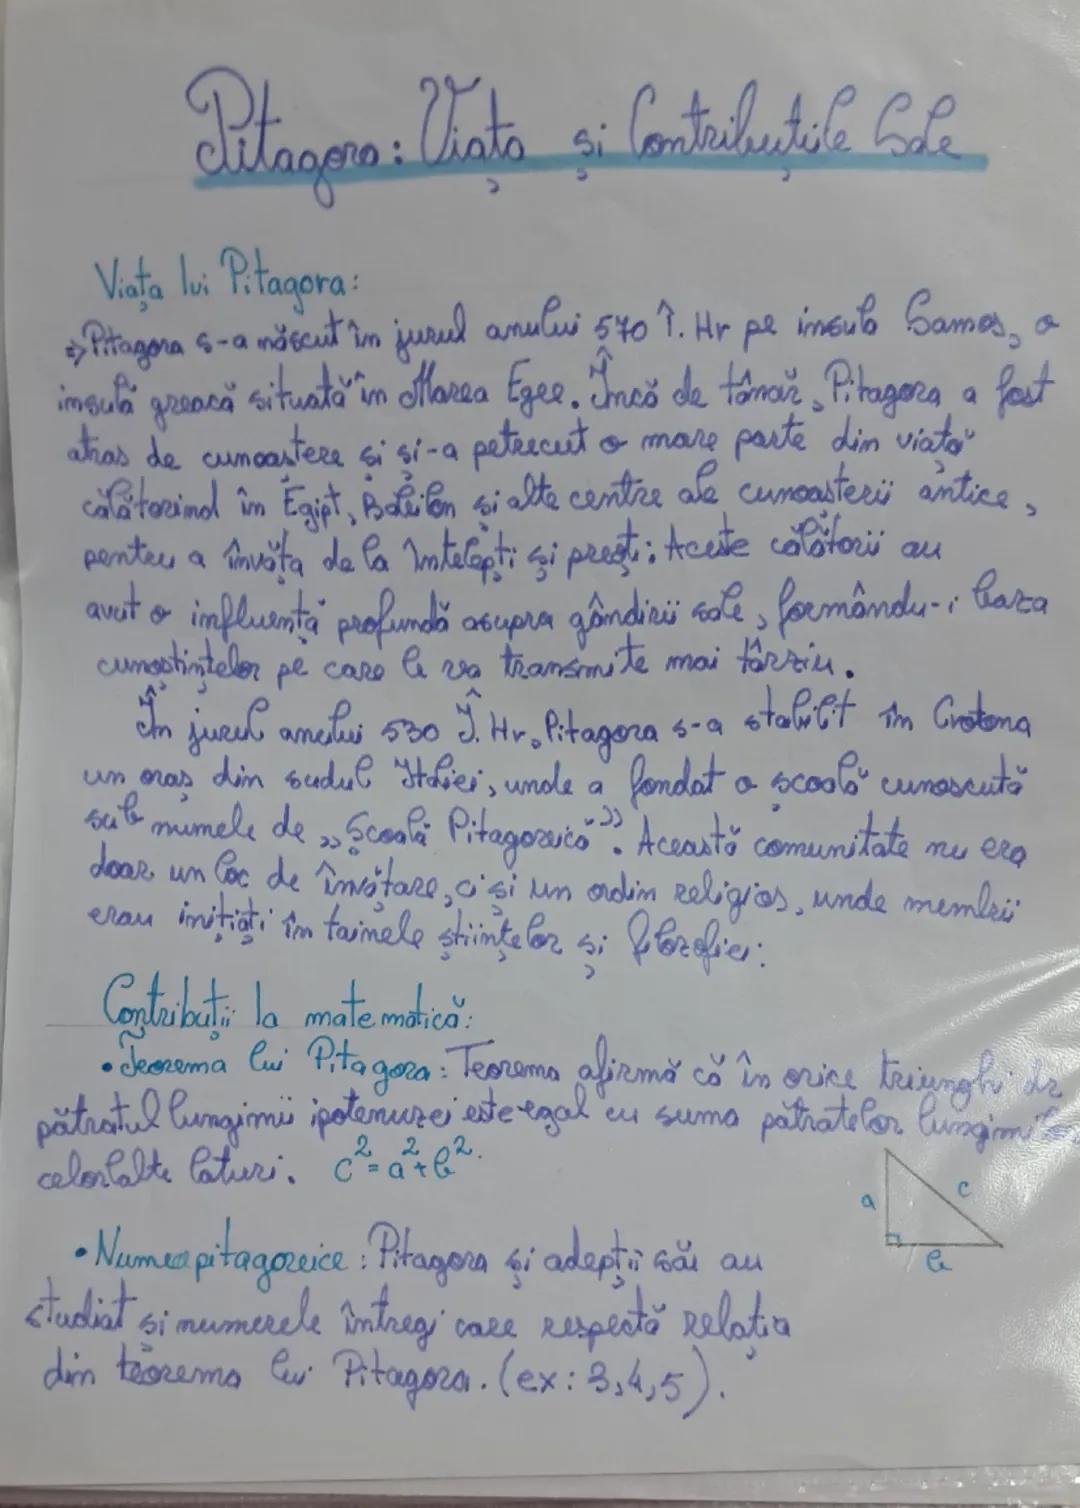 Pitagora: Viața și Contribuțiile Sale
Viața lui Pitagora:
⇒ Pitagora s-a născut în jurul anului 570 Î. Hr pe insula Samos, o
insulă greacă situată în Marea Egee. Încă de tânăr, Pitagora a fost
atras de cunoaștere și și-a petrecut o mare parte din viață
călătorind în Egipt, Babilon și alte centre ale cunoașterii antice,
pentru a învăța de la înțelepți și preoți; Aceste călătorii au
avut o influență profundă asupra gândirii sale, formându-i baza
cunoștințelor pe care le va transmite mai târziu.
În jurul anului 530 Î. Hr, Pitagora s-a stabilit în Crotona
un oraș din sudul Italiei, unde a fondat o școală cunoscută
sub numele de „Școala Pitagoreică”. Această comunitate nu era
doar un loc de învățare, ci și un ordin religios, unde membrii
erau inițiați în tainele științelor și filozofiei:
Contribuții la matematică:
• Teorema lui Pitagora: Teorema afirmă că în orice triunghi dr
pătratul lungimii ipotenuzei este egal cu suma pătratelor lungimilor
celorlalte laturi. c²=a²+b².
a c
b
• Numere pitagoreice: Pitagora și adepții săi au
studiat și numerele întregi care respectă relația
din teorema lui Pitagora. (ex: 3,4,5).